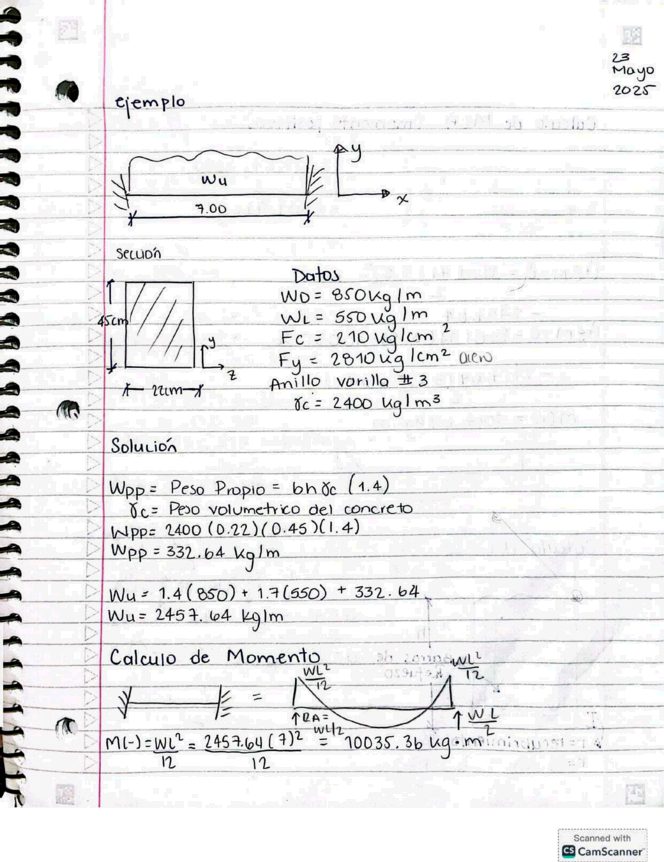 23
Mayo
2025
ejemplo
y
Wu
x
7.00
sección
45cm
y
z
22cm
Datos
WD = 850 kg/m
WL = 550 kg/m
Fc = 210 kg/cm²
Fy = 2810 kg/cm²
Anillo varilla # 3
γc = 2400 kg/m³
Solución
Wpp = Peso Propio = bhγc (1.4)
γc = Peso volumetrico del concreto
Wpp = 2400 (0.22)(0.45)(1.4)
Wpp = 332.64 kg/m
Wu = 1.4(850) + 1.7(550) + 332.64
Wu = 2457.64 kg/m
Calculo de Momento
WL²/12
WL²/12
=
RA = WL/2
WL/2
M(-) = WL²/12 = 2457.64(7)²/12 = 10035.36 kg·m
Scanned with
CS CamScanner